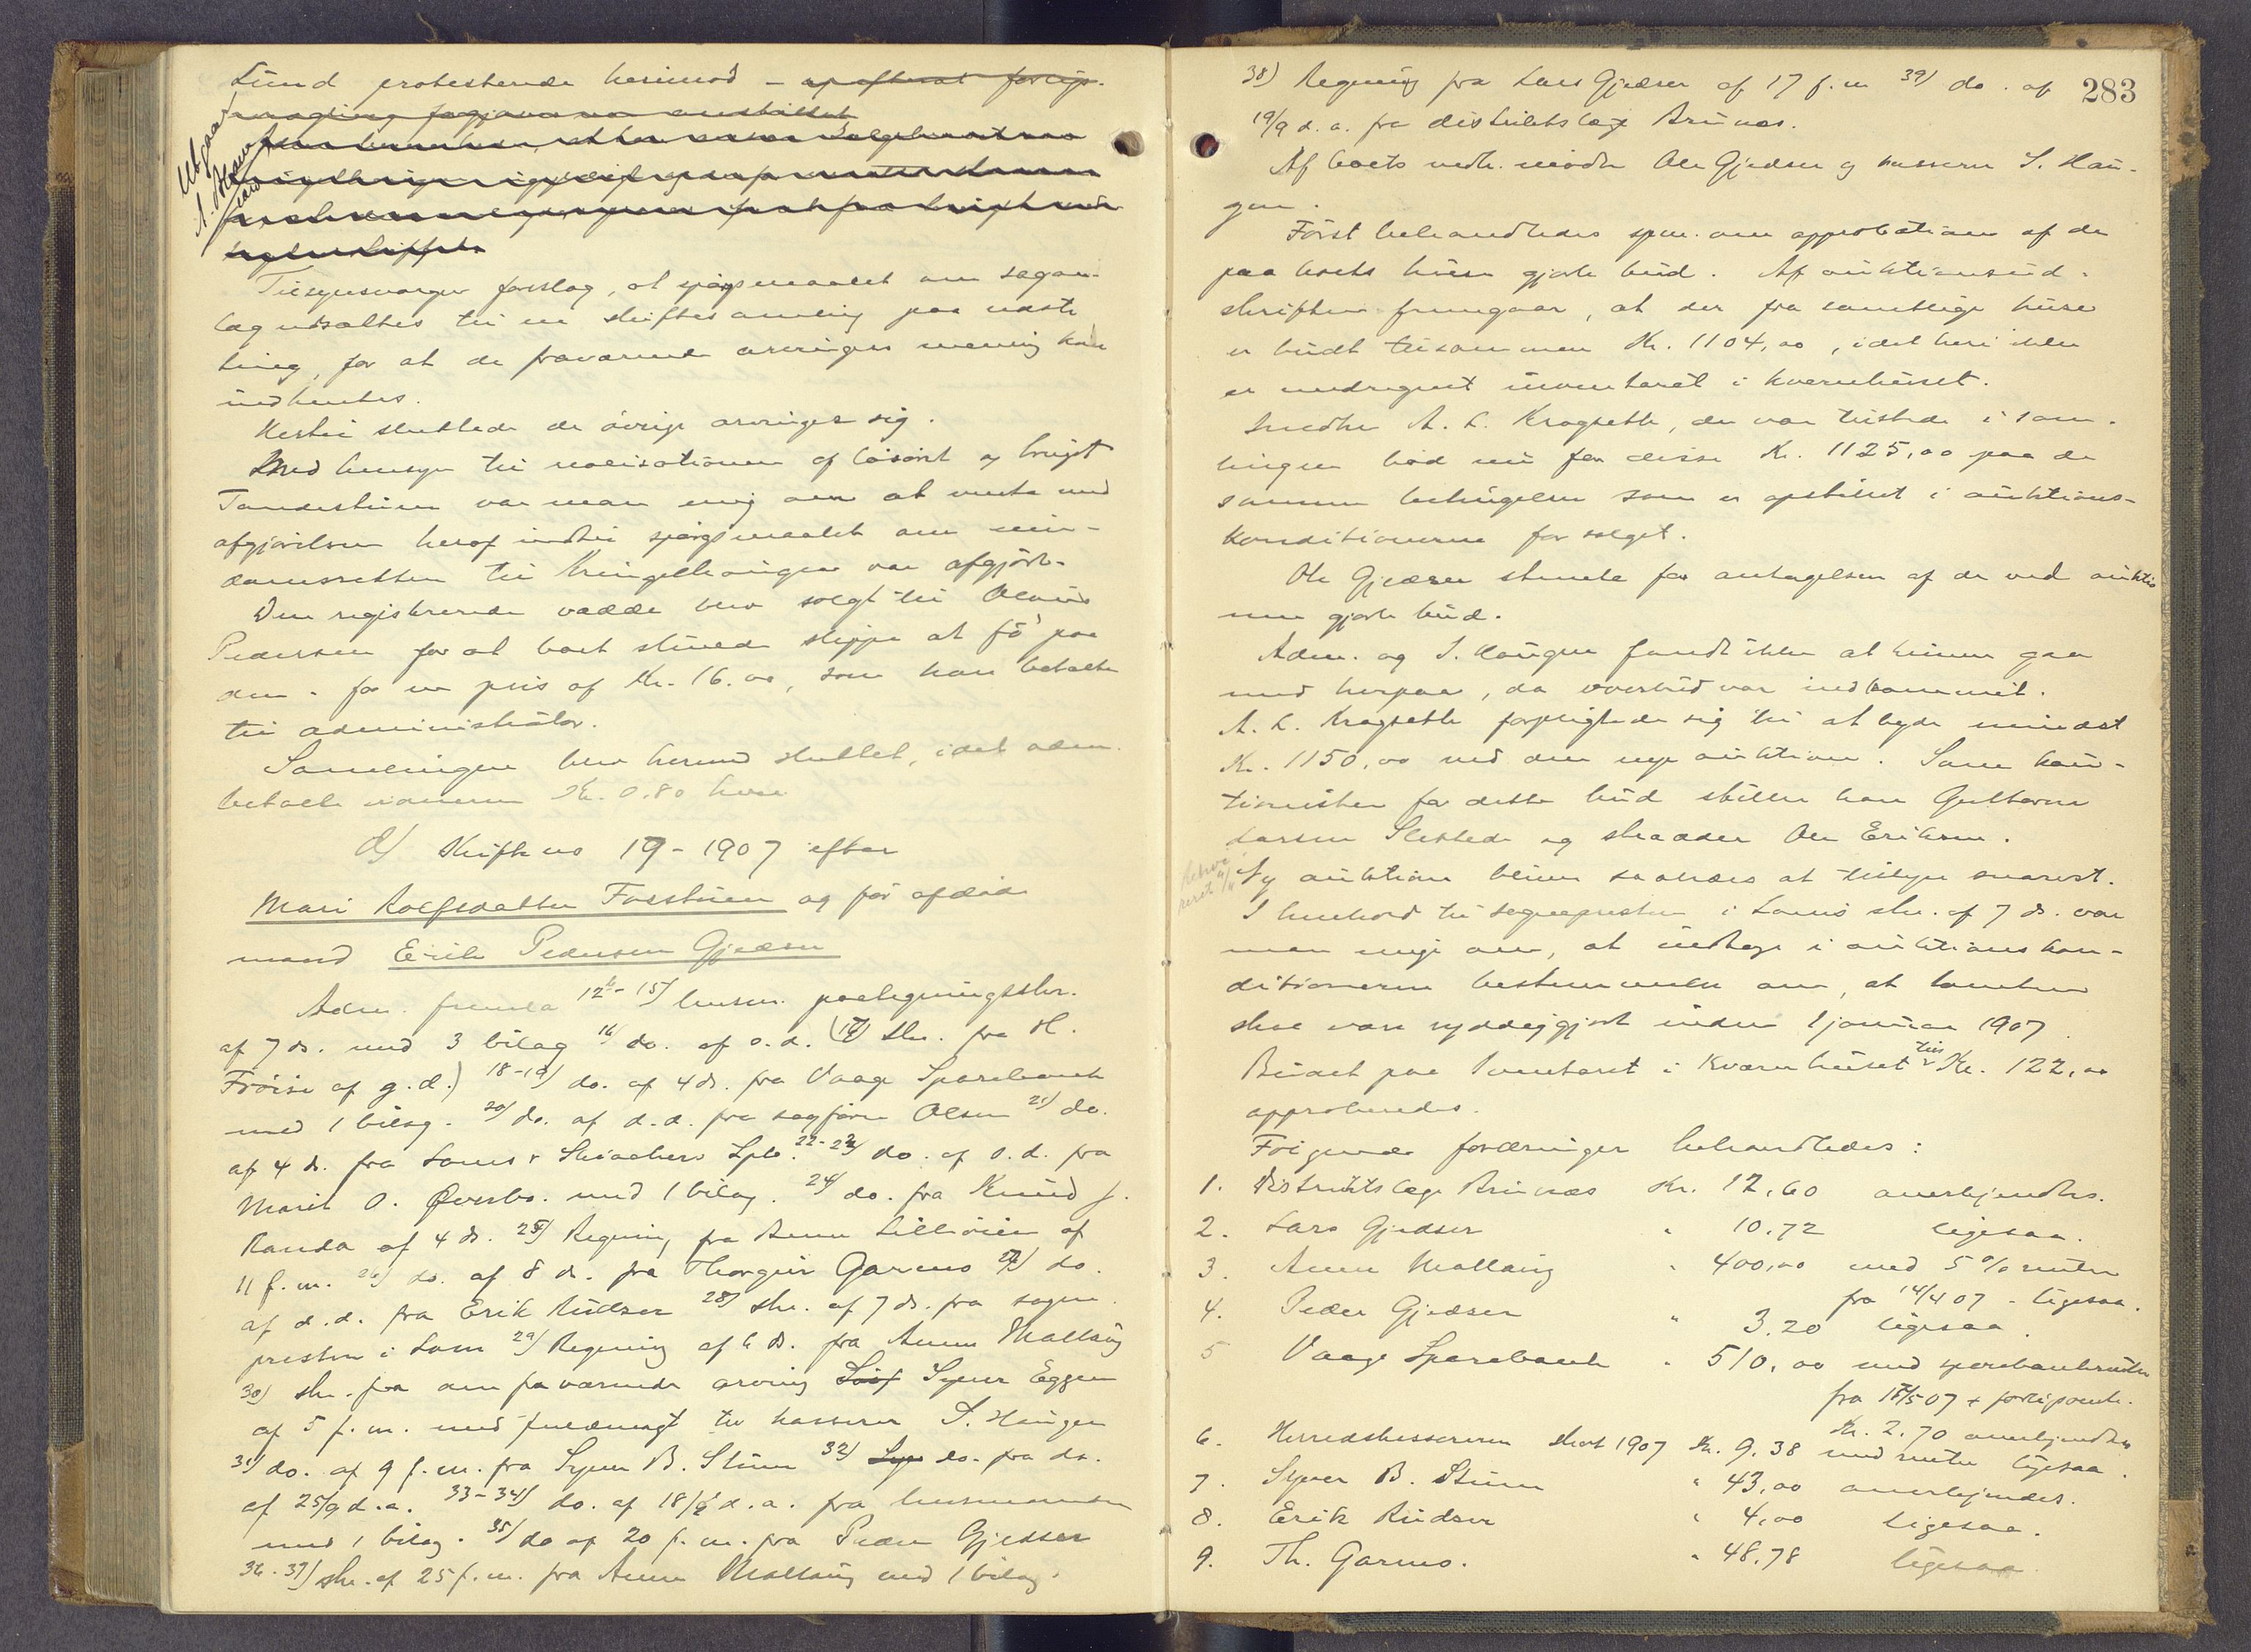 Lund protesterede herimod –
Utgaar
Tilsynsværger foreslog, at spørgsmaalet om sagan-
læg udsættes til en skiftesamling paa næste
ting, for at de fraværende arvingers mening kan
indhentes.
Hertil sluttede de øvrige arvinger sig.
Med hensyn til realisationen af løsøret og bruget
Sandestuen var man enig om at vente med
afgjørelsen heraf indtil spørgsmaalet om ein-
domsretten til var afgjort.
Den registrerede vadde blev solgt til Olaus
Pedersen for at boet skulde slippe at fø paa
den. for en pris af Kr. 16.00, som han betalte
til administrator.
Samlingen blev hermed sluttet, idet adm.
betalte vidnerne Kr. 0.80 hver
d) Skifte no 19 - 1907 efter
Mari Rolfsdatter Fosstuen og før afdøde
mand Erik Pedersen Gjedsen
Adm. fremla 12-15) lensm. paategningsskr.
af 7 ds. med 3 bilag 16) do. af s.d. (17) skr. fra H.
Frøise af g.d.) 18-19) do. af 4 ds. fra Vaage Sparebank
med 1 bilag. 20) do. af d.d. fra sagfører Olsen 21) do.
af 4 ds. fra Loms & Skiaakers Spb. 22-23) do. af s.d. fra
Marit O. Øvrebø. med 1 bilag. 24) do. fra Knud J.
Randa af 4 ds. 25) Regning fra Anne Lilleøien af
11 f.m. 26) do. af 8 ds. fra Thorgeir Garmo 27) do.
af d.d. fra Erik Rudser 28) skr. af 7 ds. fra sogne-
presten i Lom 29) Regning af 6 ds. fra Anne Mallaug
30) skr. fra den fraværende arving Syver Eggen
af 5 f.m. med fuldmagt til kasserer S. Haugen
31) do. af 9 f.m. fra Syver B. Stuen 32) do. fra do.
af 25/9 d.a. 33-34) do. af 18/9 d.a. fra lensmanden
med 1 bilag. 35) do af 20 f.m. fra Peder Gjedser
36-37) skr. af 25 f.m. fra Anne Mallaug med 1 bilag.
283
38) Regning fra Lars Gjedser af 17 f.m 39) do. af
19/9 d.a. fra distriktslæge Brunæs.
Af boets vedk. mødte Ole Gjedser og kasserer S. Hau-
gen.
Først behandledes spm. om approbation af de
paa boets huse gjorte bud. Af auktionsud-
skriften fremgaar, at der fra samtlige huse
er budt tilsammen Kr. 1104,00, idet heri ikke
er medregnet inventaret i kvernhuset.
Snedker A. L. Kragsette, der var tilstede i sam-
lingen bød nu for disse Kr. 1125,00 paa de
samme betingelser som er opstillet i auktions-
konditionerne for salget.
Ole Gjedser stemte for antagelsen af de ved auktio
nen gjorte bud.
Adm. og S. Haugen fandt ikke at kunne gaa
med herpaa, da overbud var indkommet.
A. L. Kragsette forpligtede sig til at byde mindst
Kr. 1150,00 ved den nye auktion. Som kau-
tionister for dette bud stiller han Guttorm
Larsen Sletlede og skrædder Ole Eriksen.
Ny auktion bliver saaledes at tillyse snarest.
I henhold til sognepresten i Loms skr. af 7 ds. var
man enige om, at indtage i auktionskon-
ditionerne bestemmelse om, at tomten
skal være ryddiggjort inden 1 januar 1907.
Budet paa inventaret i kvernhuset til Kr. 122,00
approberedes.
Følgende fordringer behandledes:
1. Distriktslæge Brunæs Kr. 12.60 anerkjendtes.
2. Lars Gjedser " 10.72 ligesaa.
3. Anne Mallaug " 400,00 med 5 % renter
fra 14/4 07 - ligesaa.
4. Peder Gjedser " 3.20 ligesaa.
5 Vaage Sparebank " 510,00 med sparebankrenter
fra 18/5 07 +
Kr. 2.70 anerkjendtes
6. Herredskassereren skat 1907 Kr. 9.38 med renter ligesaa.
7. Syver B. Stuen " 43,00 anerkjendes.
8. Erik Rudser " 4,00 ligesaa.
9. Th. Garmo. " 48.78 ligesaa